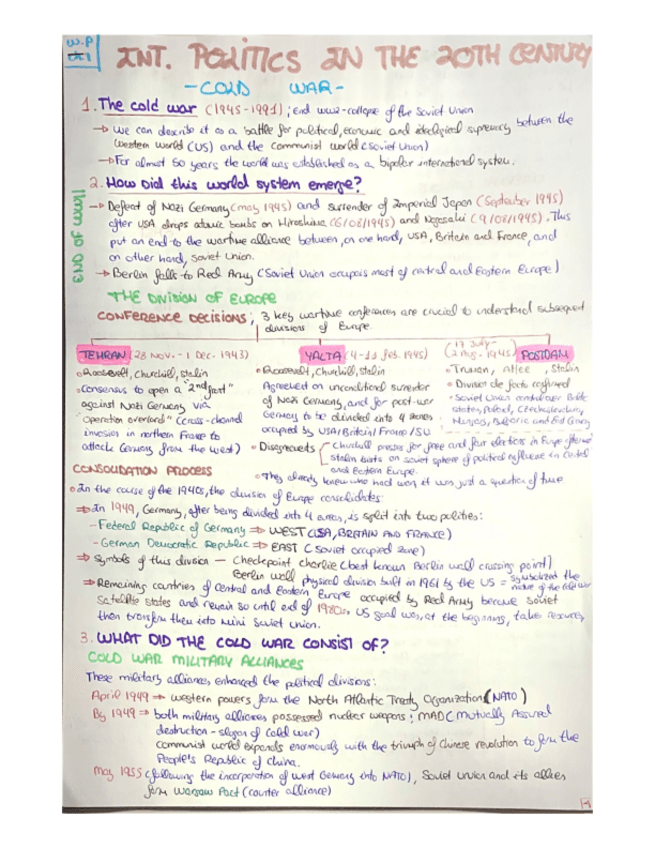 W.P
INT. POLITICS IN THE 20TH CENTURY
- COLD WAR -
1. The cold war (1945-1991); end ww2-collapse of the Soviet Union
→ We can describe it as a battle for political, economic and ideological supremacy between the
Western world (US) and the communist world (Soviet Union)
→ For almost 50 years the world was established as a bipolar international system.
2. How Did this world system emerge?
END OF WWII
→ Defeat of Nazi Germany (may 1945) and surrender of Imperial Japan (September 1945)
after USA drops atomic bombs on Hiroshima (6/08/1945) and Nagasaki (9/08/1945). This
put an end to the wartime alliance between, on one hand, USA, Britain and France, and
on other hand, Soviet Union.
→ Berlin falls to Red Army (Soviet Union occupies most of central and Eastern Europe)
THE DIVISION OF EUROPE
CONFERENCE DECISIONS; 3 key wartime conferences are crucial to understand subsequent
divisions of Europe
TEHRAN (28 NOV. - 1 Dec. 1943)
Roosevelt, Churchill, Stalin
Consensus to open a "2nd front"
against Nazi Germany via
"operation overlord" (cross-channel
invasion in northern France to
attack Germany from the west)
YALTA (4-11 feb. 1945)
Roosevelt, Churchill, Stalin
Agreed on unconditional surrender
of Nazi Germany, and for post-war
Germany to be divided into 4 zones
occupied by USA/Britain/France/SU
Disagreements
Churchill presses for free and fair elections in Europe
Stalin insists on soviet sphere of political influence in central
and Eastern Europe.
They already knew who had won, it was just a question of time
(17 July-
2 Aug. 1945) POSTDAM
Truman, Atlee, Stalin
Division de facto confirmed
Soviet Union Baltic
states, Poland, Czechoslovakia,
Hungary, Bulgaria and East Germany
CONSOLIDATION PROCESS
In the course of the 1940s, the division of Europe consolidates:
⇒ In 1949, Germany, after being divided into 4 areas, is split into two polities:
- Federal Republic of Germany ⇒ WEST (USA, BRITAIN AND FRANCE)
- German Democratic Republic ⇒ EAST (Soviet occupied zone)
⇒ Symbols of this division — Checkpoint Charlie (best known Berlin wall crossing point)
Berlin wall physical division built in 1961 by the US = symbolized the
nature of the cold war
⇒ Remaining countries of central and Eastern Europe occupied by Red Army become Soviet
satellite states and remain so until end of 1980s. US goal was, at the beginning, take resources,
then transform them into mini Soviet Union.
3. WHAT DID THE COLD WAR CONSIST OF?
COLD WAR MILITARY ALLIANCES
These military alliances enhanced the political divisions:
April 1949 ⇒ western powers form the North Atlantic Treaty Organization (NATO)
By 1949 ⇒ both military alliances possessed nuclear weapons; MAD (Mutually Assured
destruction - slogan of Cold war)
Communist world expands enormously with the triumph of Chinese revolution to form the
People's Republic of China.
May 1955 (following the incorporation of West Germany into NATO), Soviet Union and its allies
form Warsaw Pact (counter alliance)